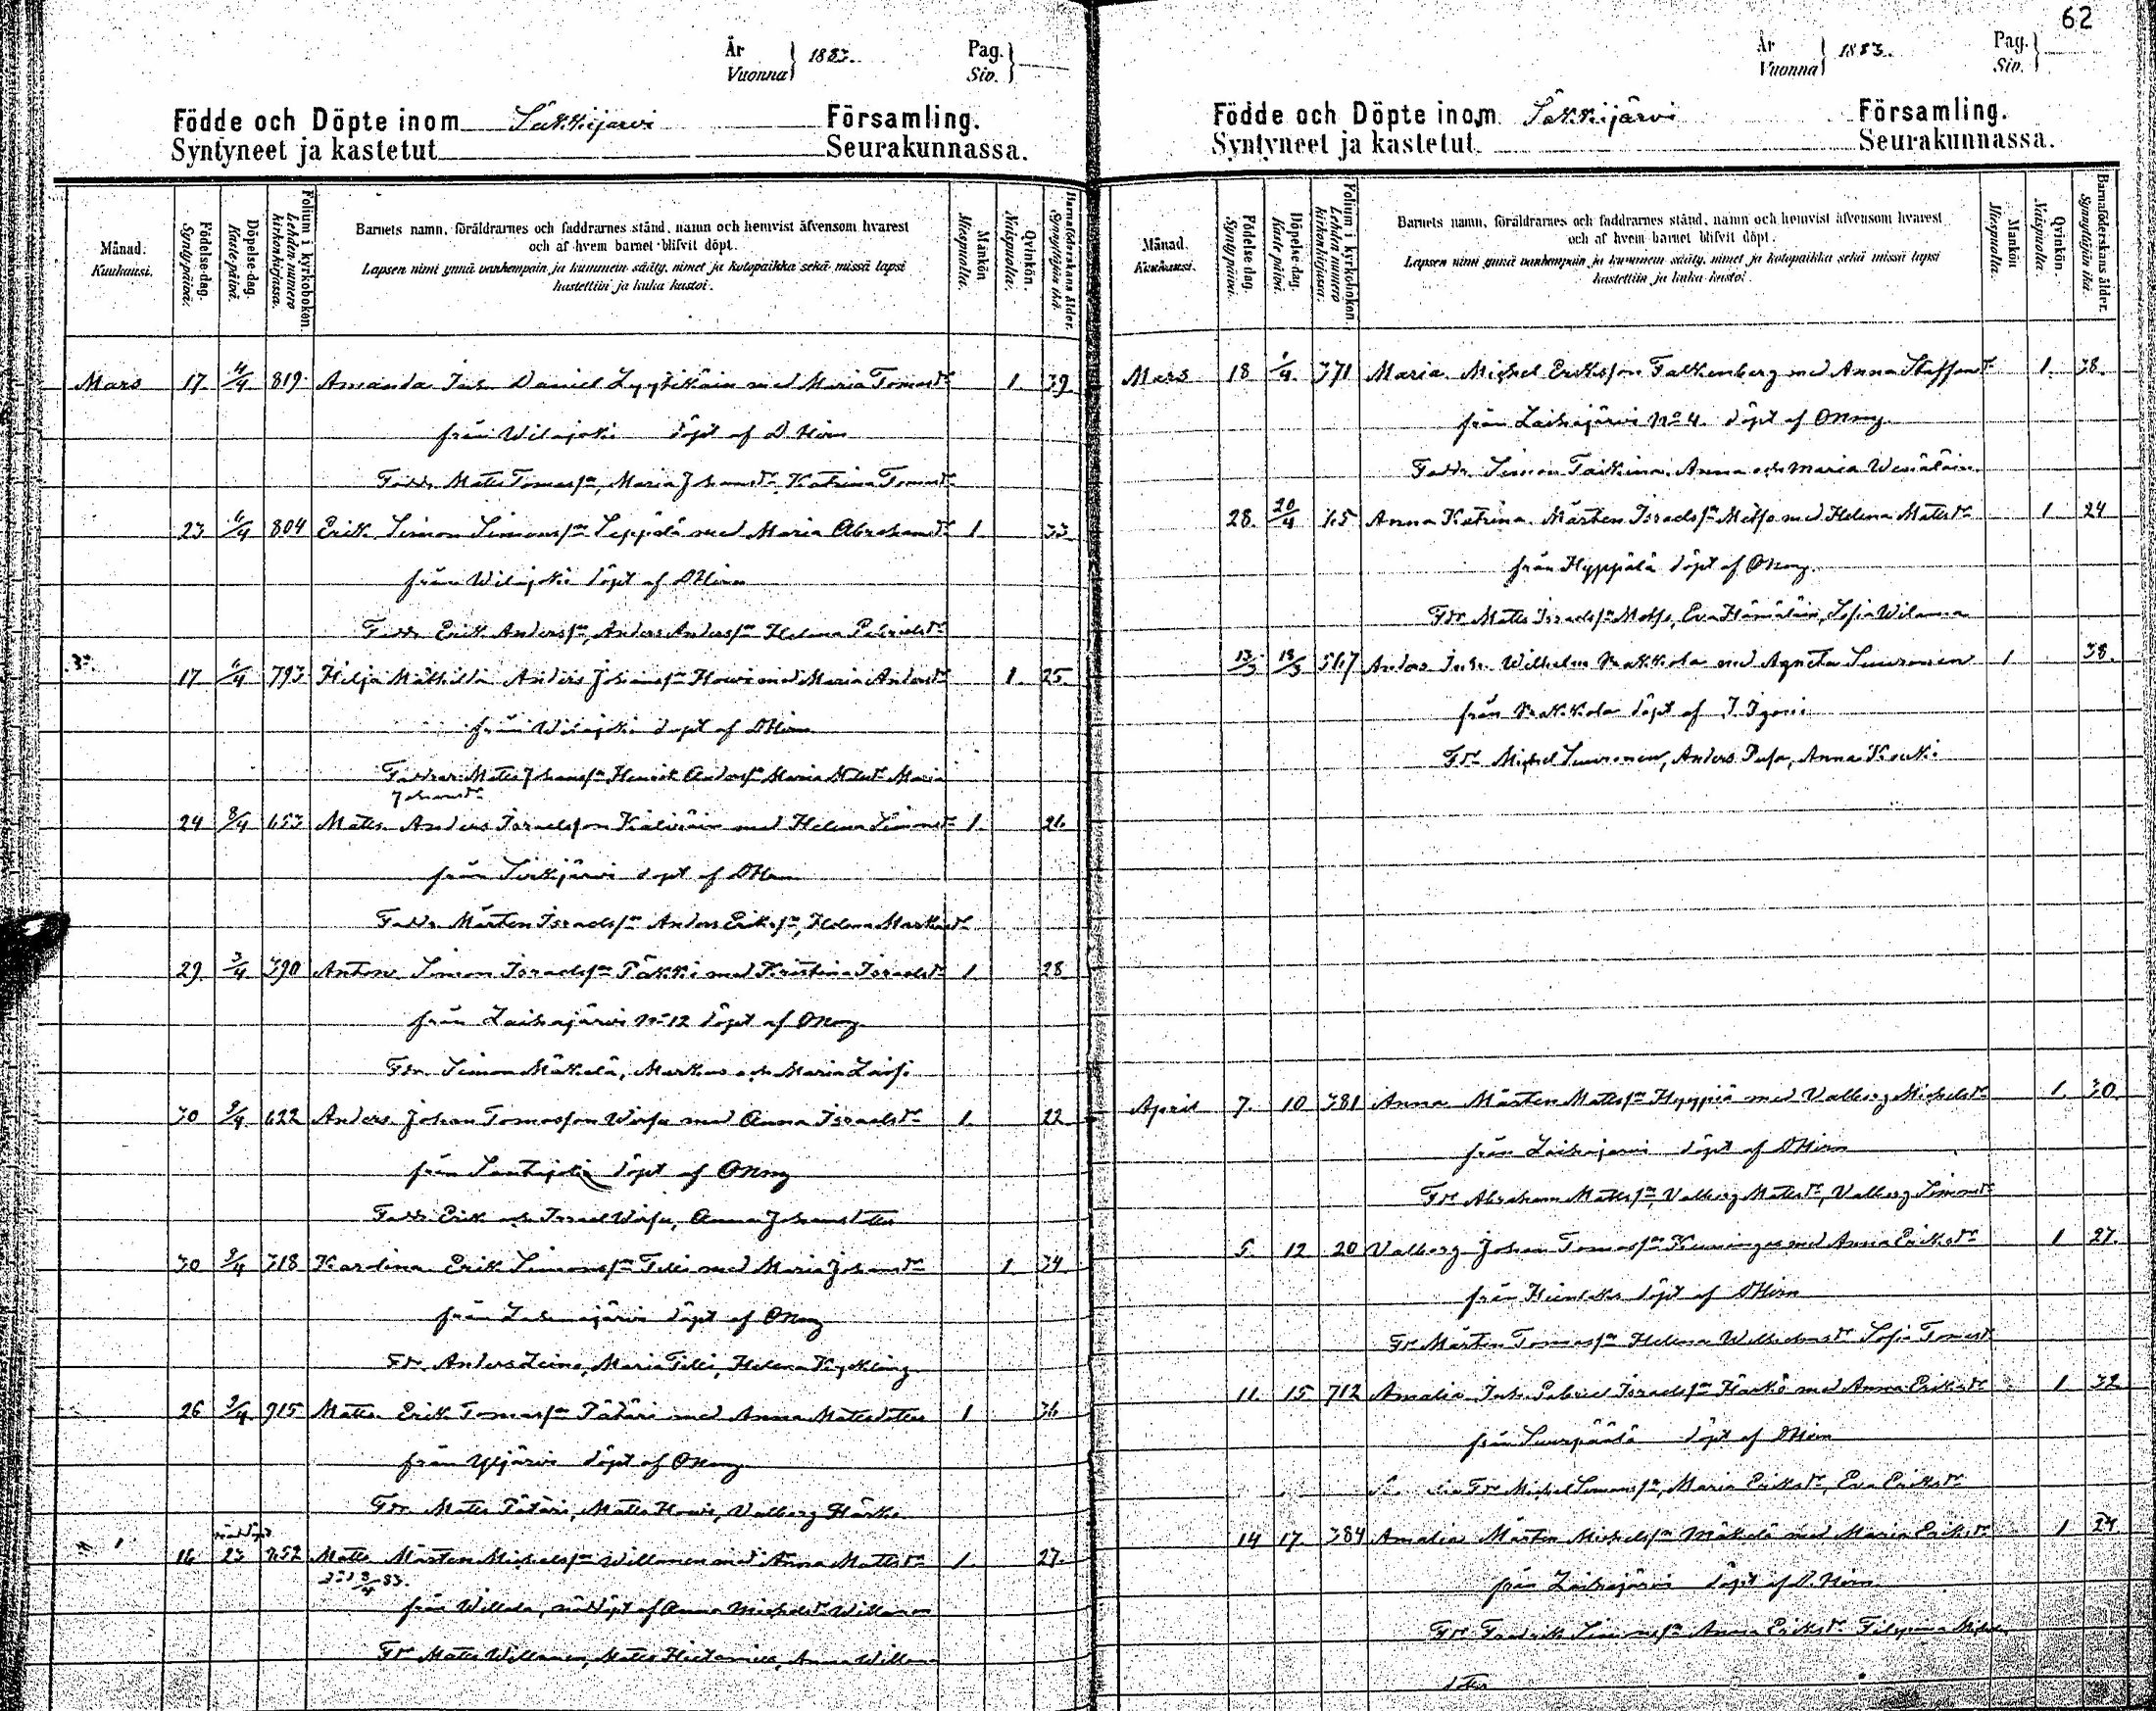 År
Vuonna
1883.
Pag.
Siv.
Födde och Döpte inom Säkkijärvi Församling.
Syntyneet ja kastetut Seurakunnassa.
Månad.
Kuukausi.
Födelse-dag.
Synty päivä.
Döpelse-dag.
Kaste päivä.
Folium i kyrkobokon.
Lehden numero kirkonkirjassa.
Barnets namn, föräldrarnes och faddrarnes stånd, namn och hemvist äfvensom hvarest
och af hvem barnet blifvit döpt.
Lapsen nimi ynnä vanhempain ja kummein sääty, nimet ja kotopaikka sekä missä lapsi
kastettiin ja kuka kastoi.
Mankön
Miespuolta.
Qvinkön.
Naispuolta.
Barnaföderskans ålder.
Synnyttäjän ikä.
Mars 17. 4/4 819. Amanda Inh. Daniel Lyytikäin med Maria Tomasdr 1 39
från Wilajoki döpt af D Hirn
Faddr Matts Tomassn, Maria Johansdr, Katrina Tomasdr
23 4/4 804 Erik Simon Simonssn Seppälä med Maria Abrahamsdr 1 33
från Wilajoki döpt af D Hirn
Faddr Erik Anderssn, Anders Anderssn Helena
17 4/4 793 Hilja Mathilda Anders Johanssn Howi med Maria Andersdr 1. 25
från Wilajoki döpt af D Hirn
Faddrar Matts Johanssn Henrik Anderssn Maria Maria
Johansdr
24 8/4 653 Matts Anders Israelsson Kälviäin med Helena Simonsdr 1. 26
från Sirkjärvi döpt af D Hirn
Faddr Mårten Israelssn Anders Erikssn, Helena
29 3/4 390 Anton Simon Israelssn Päkki med Kristina Israelsdr 1 28
från Laihajärvi No 12 döpt af
Fdr Simon Mäkelä, Markus och Maria
30 9/4 622 Anders Johan Tomasson med Anna Israelsdr 1. 22
från Santajoki döpt af
Faddr Erik och Israel Anna Johansdotter
30 9/4 718 Karolina Erik Simonssn Tilli med Maria Johansdr 1 34
från döpt af
Fdr Anders Leino, Maria Tilli, Helena
26 9/4 715 Matts Erik Tomassn Pätäri med Anna Mattsdotter 1 36
från Yljärvi döpt af
Fdr Matts Pätäri, Matts Howi, Valborg Härkö
nöddöpt
16 23 752 Matts Mårten Michelssn Willanen med Anna Mattsdr 1. 27.
från Willala, nöddöpt af Anna Michelsdr Willanen
Fdr Matts Willanen, Matts Hietamies, Anna Willanen
62
År
Vuonna
1883.
Pag.
Siv.
Födde och Döpte inom Säkkijärvi Församling.
Syntyneet ja kastetut Seurakunnassa.
Månad.
Kuukausi.
Födelse dag.
Synty päivä.
Döpelse dag.
Kaste päivä.
Folium i kyrkobokon.
Lehden numero kirkonkirjassa.
Barnets namn, föräldrarnes och faddrarnes stånd, namn och hemvist äfvensom hvarest
och af hvem barnet blifvit döpt.
Lapsen nimi ynnä vanhempain ja kummein sääty, nimet ja kotopaikka sekä missä lapsi
kastettiin ja kuka kastoi.
Mankön
Miespuolta.
Qvinkön.
Naispuolta.
Barnaföderskans ålder.
Synnyttäjän ikä.
Mars 18 1/4. 371 Maria Michel Eriksson Falkenberg med Anna Staffansdr 1. 38.
från Laihajärvi No 4. döpt af
Faddr. Simon Taikina, Anna och Maria Wenäläin
28. 20/4 65 Anna Katrina Mårten Israelssn Metso med Helena Mattsdr 1 24
från Hyppälä döpt af
Fdr Matts Israelssn Metso, Eva Hämäläin, Sofia
13/3 18/3 567 Anders Inh. Wilhelm Nakkola med Agneta Suuronen 1 38.
från Nakkola döpt af J. Igoni
Fdr Michel Suuronen, Anders Pusa, Anna Kouki
April 7. 10 381 Anna Mårten Mattssn Hyypiä med Valborg Michelsdr 1. 30
från Laihajärvi döpt af D Hirn
Fdr Abraham Mattssn, Valborg Mattsdr, Valborg Simonsdr
5. 12 20 Valborg Johan Tomassn Kuningas med Anna Eriksdr 1 27.
från döpt af D Hirn
Fdr Mårten Tomassn Helena Wilhelmsdr Sofia Tomasdr
11. 15 712 Amalia Inh. Gabriel Israelssn Härkö med Anna Eriksdr 1 32
från Suurpäälä döpt af D Hirn
Fdr Michel Simonssn, Maria Eriksdr, Eva Eriksdr
14 17. 384 Amalia Mårten Michelssn Mäkelä med Maria Eriksdr 1 24
från Laihajärvi döpt af D. Hirn
Fdr Fredrik Simonssn Anna Eriksdr Filipina Michels
dotter